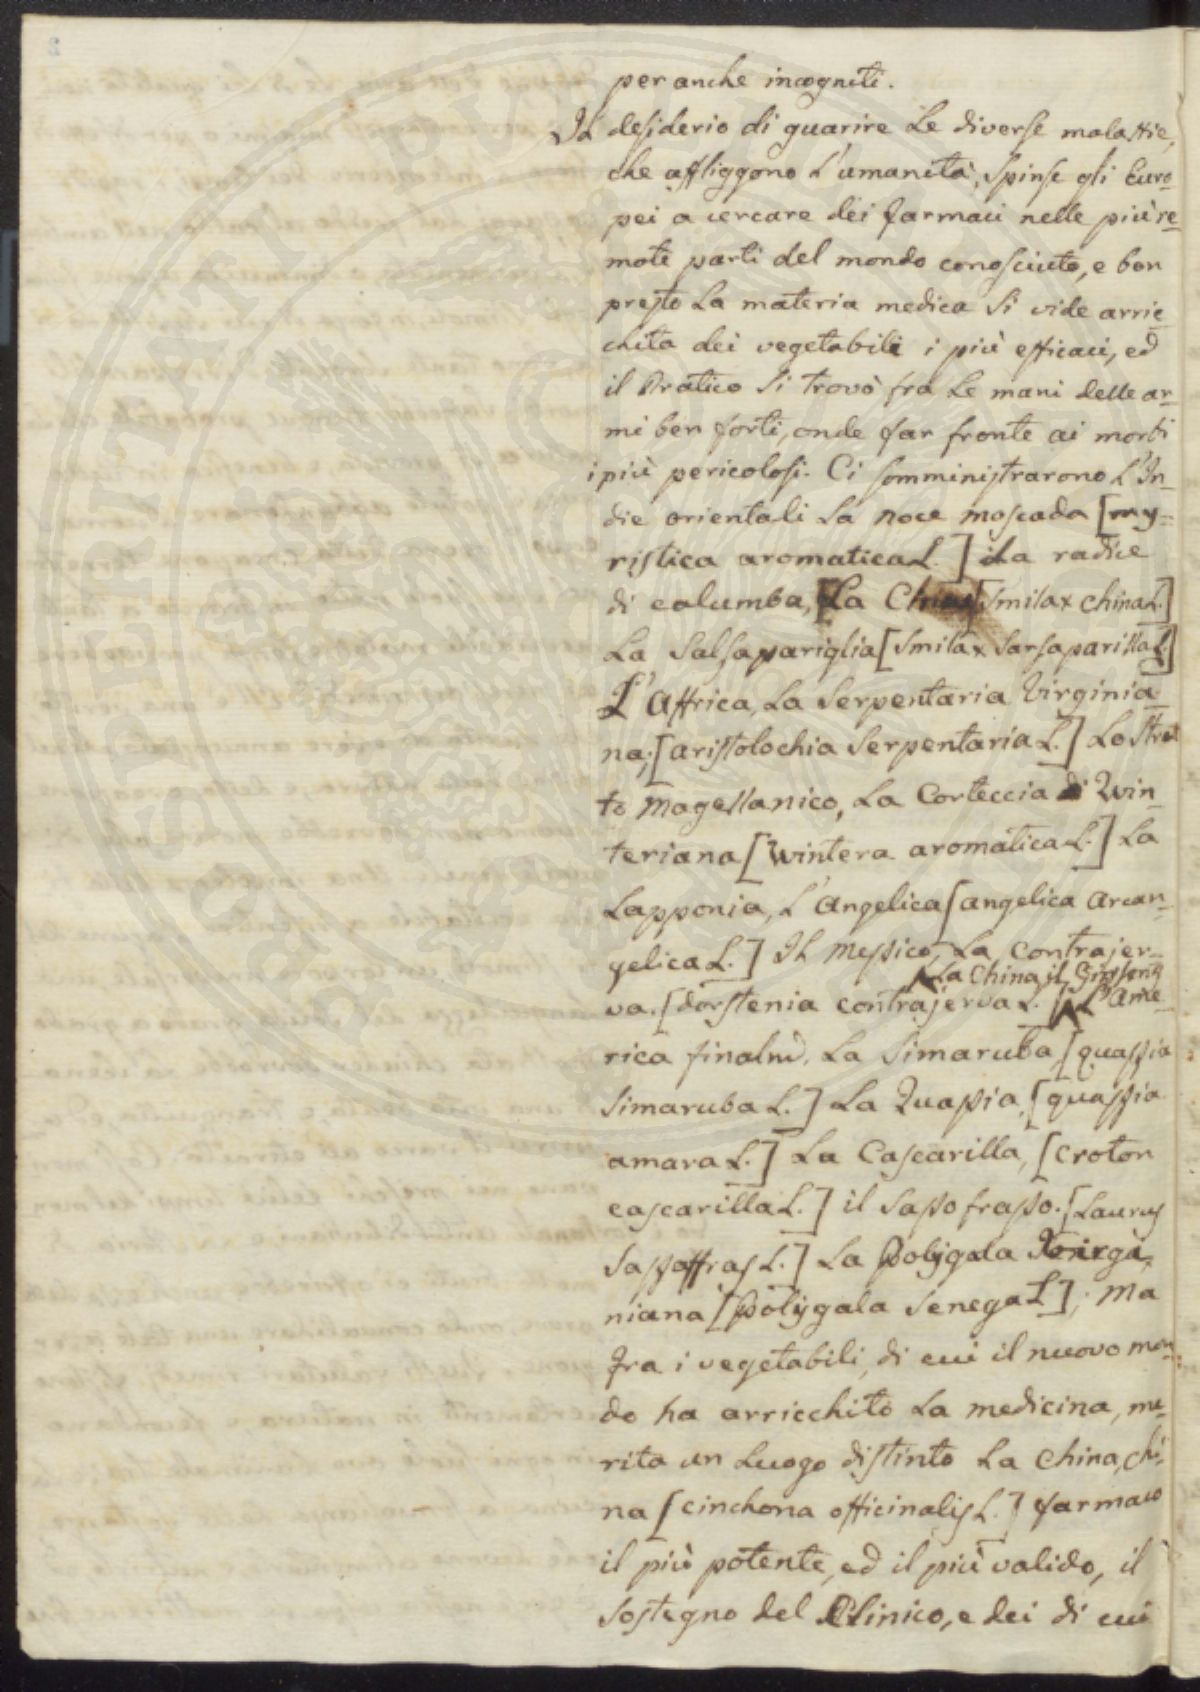 per anche incogniti.
Il desiderio di guarire le diverse malattie,
che affliggono l'umanità, spinse gli Euro-
pei a cercare dei farmaci nelle più re-
mote parti del mondo conosciuto, e ben
presto la materia medica si vide arric-
chita dei vegetabili i più efficaci, ed
il Pratico si trovò fra le mani delle ar-
mi ben forti, onde far fronte ai morbi
i più pericolosi. Ci somministrarono l'In-
die orientali la noce moscada [my-
ristica aromatica L.] la radice
di columba, La China [Smilax china L.]
La Salsapariglia [Smilax Sarsaparilla L.]
L'Affrica, la Serpentaria Virginia-
na; [aristolochia Serpentaria L.] Lo Stret
to Magellanico, la Corteccia di Win-
teriana [Wintera aromatica L.] La
Lapponia, l'Angelica [angelica arcan-
gelica L.] Il Messico, la contrajer-
va. [dorstenia contrajerva L.] La China il Ginseng L'Ame-
rica finalm. la Simaruba [quassia
Simaruba L.] La Quassia, [quassia
amara L.] La Cascarilla, [Croton
cascarilla L.] il Sassofrasso. [Laurus
Sassaffras L.] La Polÿgala Virgi-
niana [Polÿgala Senega L.]; Ma
fra i vegetabili, di cui il nuovo mon-
do ha arricchito la medicina, me-
rita un luogo distinto la China chi-
na [Cinchona officinalis L.] farmaco
il più potente, ed il più valido, il
sostegno del Clinico, e dei di cui